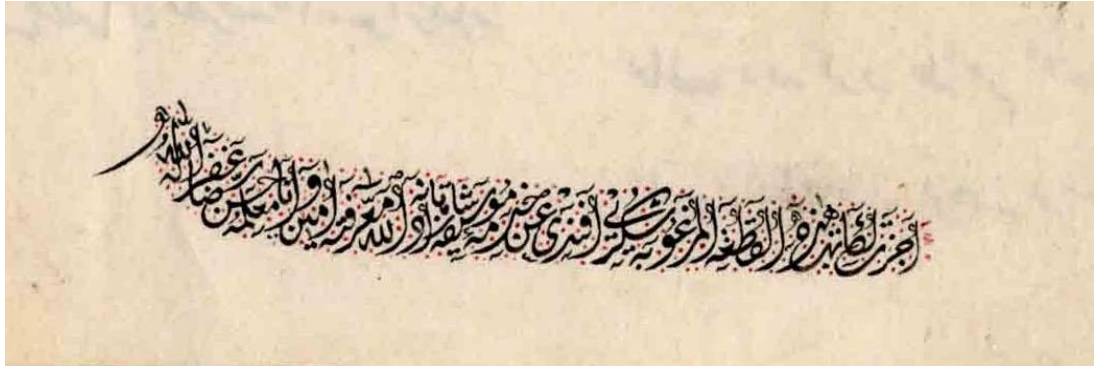 أجزت لكاتب هذه القطعة المرغوبة شكري افندى عن خدمه موزيقه شاهانه أدام الله معرفته آمين وأنا معلمه حسن رضا غفر الله